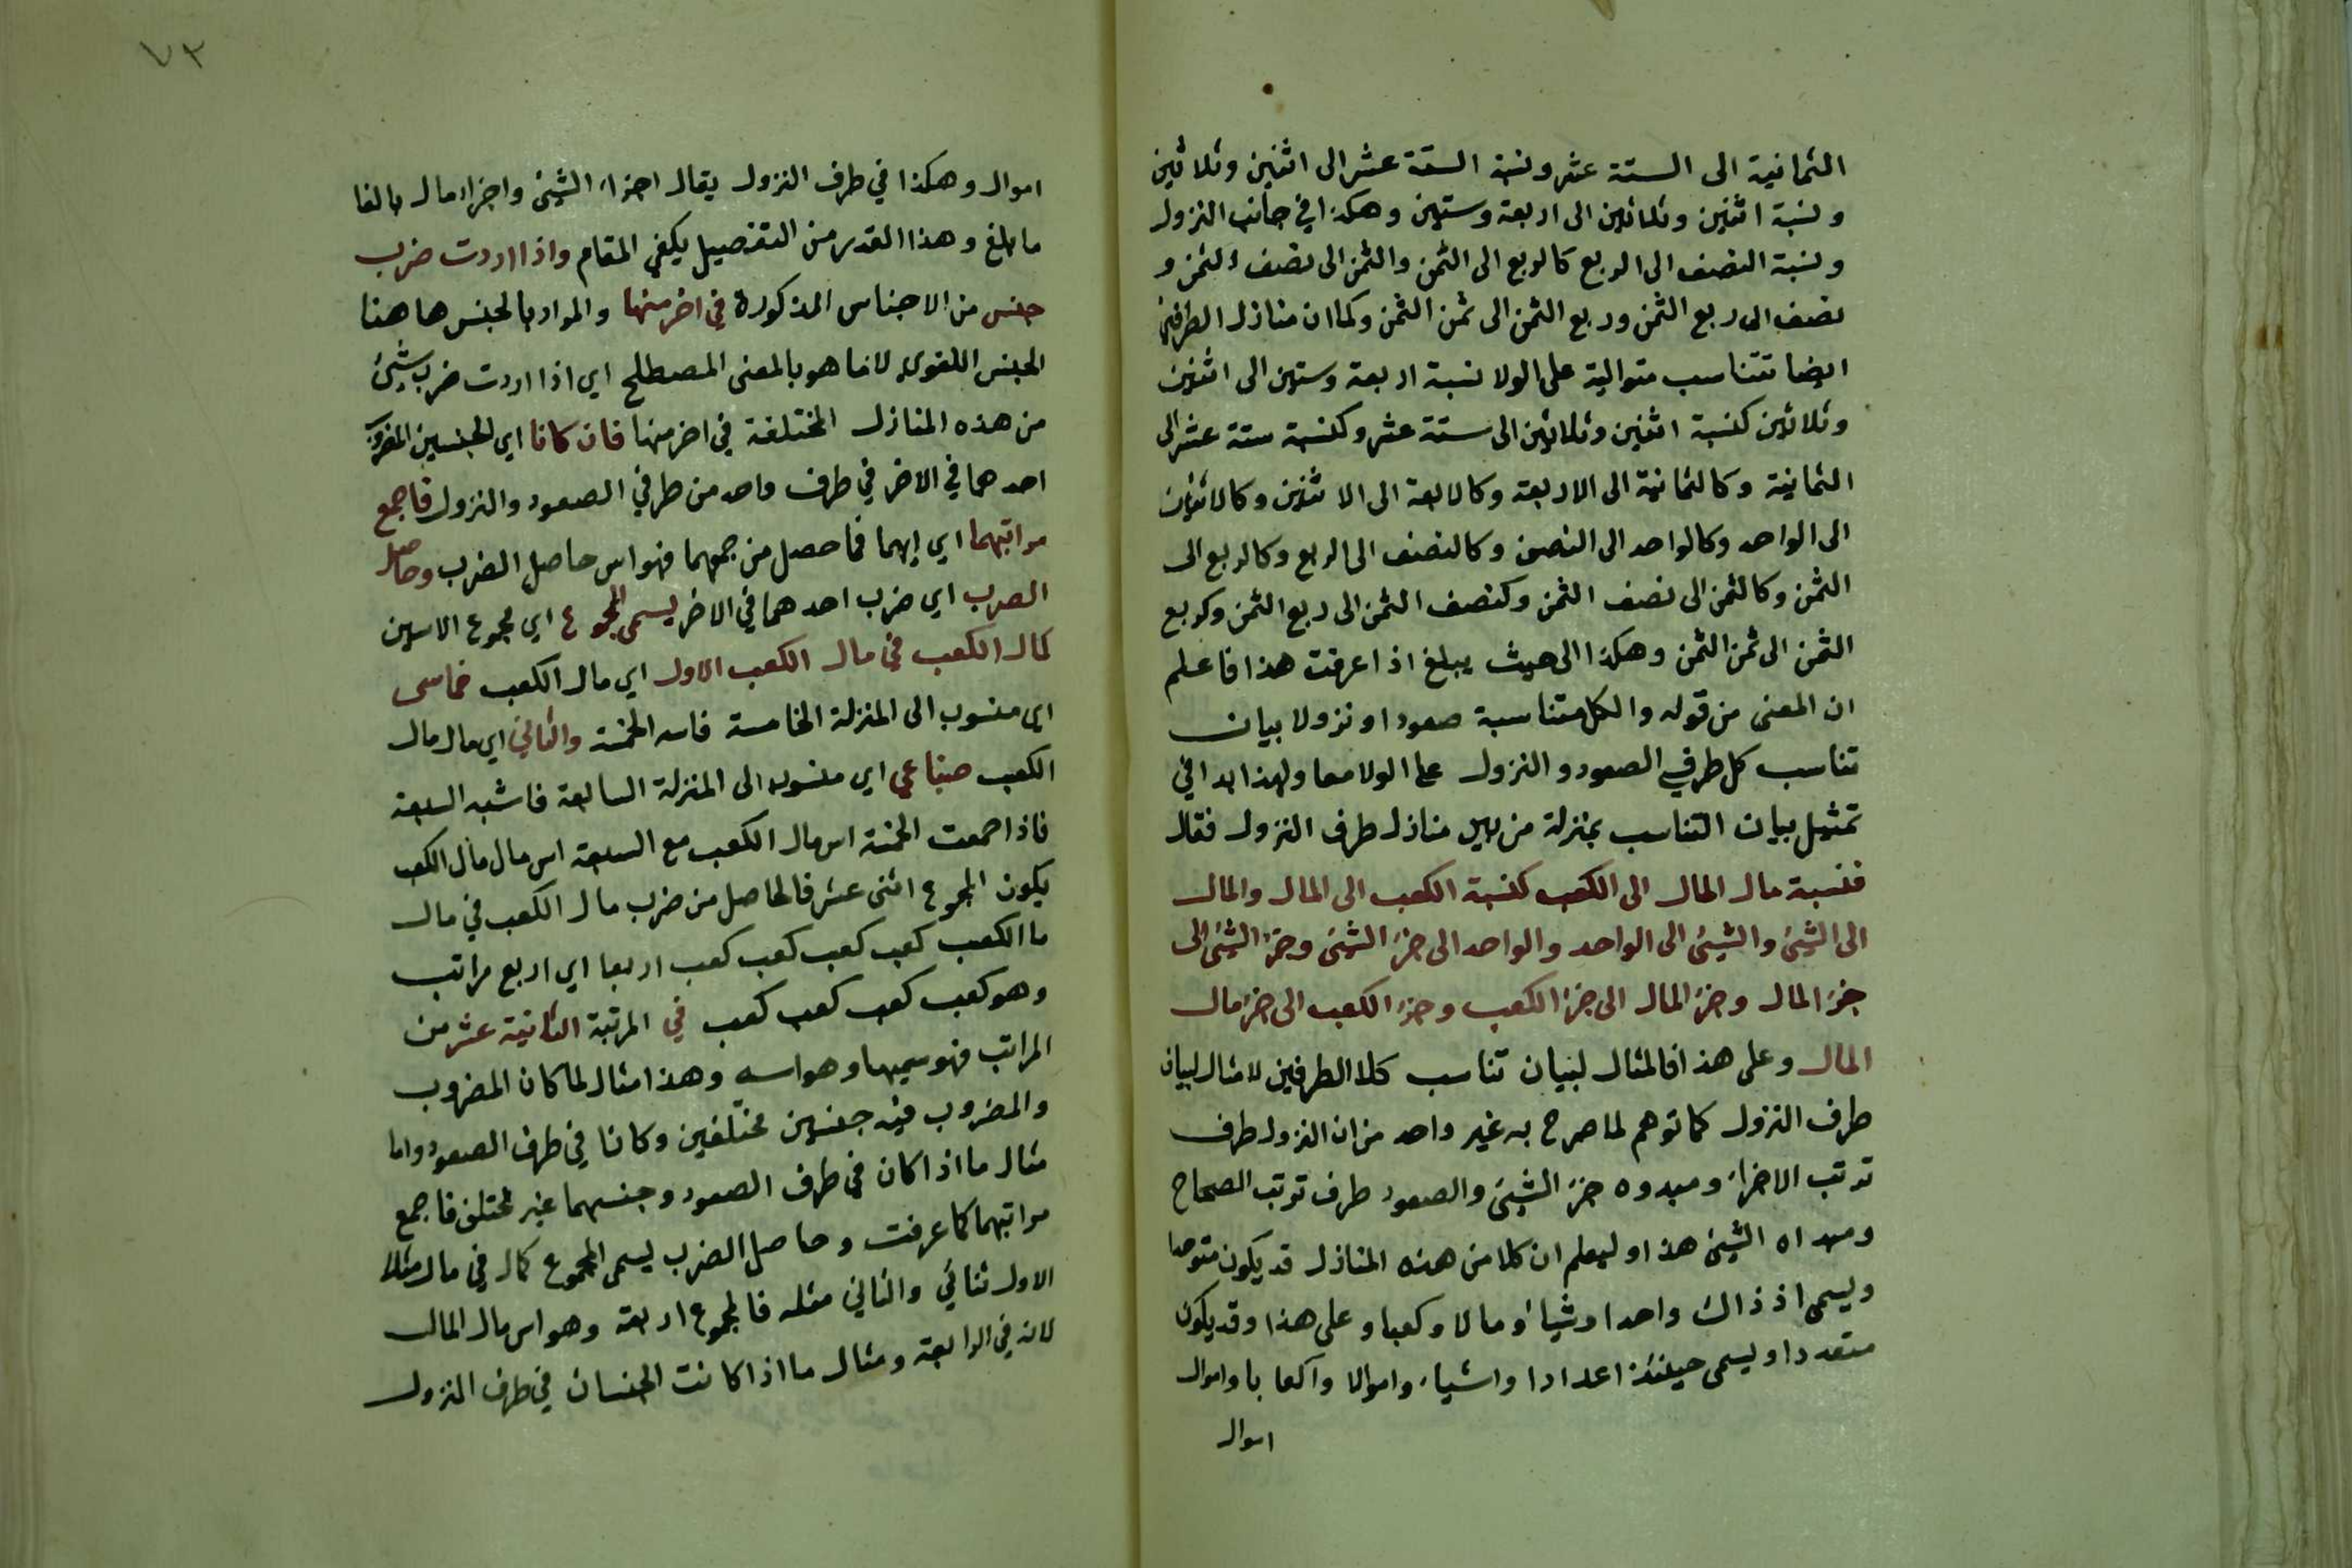 الثمانية الى الستة عشر ونسبة الستة عشر الى اثنين وثلاثين
ونسبة اثنين وثلاثين الى اربعة وستين وهكذا في جانب النزول
ونسبة النصف الى الربع كالربع الى الثمن والثمن الى نصف الثمن و
نصف الى ربع الثمن وربع الثمن الى ثمن الثمن وكما ان منازل الطرفين
ايضا تتناسب متوالية على الولا نسبة اربعة وستين الى اثنين
وثلاثين كنسبة اثنين وثلاثين الى ستة عشر وكنسبة ستة عشر الى
الثمانية وكالثمانية الى الاربعة وكالاربعة الى الاثنين وكالاثنين
الى الواحد وكالواحد الى النصف وكالنصف الى الربع وكالربع الى
الثمن وكالثمن الى نصف الثمن وكنصف الثمن الى ربع الثمن وكربع
الثمن الى ثمن الثمن وهكذا الى حيث يبلغ اذا عرفت هذا فاعلم
ان المعنى من قوله والكل متناسبة صعودا ونزولا بيان
تناسب كل طرفي الصعود والنزول على الولا معا ولهذا بدا في
تمثيل بيان التناسب بمنزلة من بين منازل طرف النزول فقال
فنسبة مال المال الى الكعب كنسبة الكعب الى المال والمال
الى الشيئ والشيئ الى الواحد والواحد الى جزء الشيئ وجزء الشيئ الى
جزء المال وجزء المال الى جزء الكعب وجزء الكعب الى جزء مال
المال وعلى هذا فالمثال لبنيان تناسب كلا الطرفين لا مثال لبيان
طرف النزول كما توهم لما صرح به غير واحد من ان النزول طرف
ترتب الاجزاء ومبدوه جزء الشيئ والصعود طرف ترتب الصحاح
ومبداه الشيئ هذا وليعلم ان كلا من هذه المنازل قد يكون متوحدا
ويسمى اذ ذاك واحدا وشيأ ومالا وكعبا وعلى هذا وقد يكون
متعددا ويسمى حينئذ اعدادا واشياء واموالا وآكعابا واموال
اموال
٧٣
اموال وهكذا في طرف النزول يقال اجزاء الشيئ واجزاء مال بالغا
ما بلغ وهذا القدر من التفصيل يكفي المقام واذا اردت ضرب
جنس من الاجناس المذكورة في اخر منها والمراد بالجنس هاهنا
الجنس اللغوي لا ما هو بالمعنى المصطلح اي اذا اردت ضرب شيئ
من هذه المنازل المختلفة في اخر منها فان كانا اي الجنسين المضروب
احدهما في الاخر في طرف واحد من طرفي الصعود والنزول فاجمع
مراتبهما اي إسهما فما حصل من جمعهما فهو اس حاصل الضرب وحاصل
الضرب اي ضرب احدهما في الاخر يسمى المجموع اي مجموع الاسين
كمال الكعب في مال الكعب الاول اي مال الكعب خماسى
اي منسوب الى المنزلة الخامسة فاسه الخمسة والثاني اي مال مال
الكعب اي منسوب الى المنزلة السابعة السبعة
فاذا جمعت الخمسة اس مال الكعب مع السبعة اس مال مال الكعب
يكون المجموع اثنى عشر فالحاصل من ضرب مال الكعب في مال
ما الكعب كعب كعب كعب كعب اربعا اي اربع مراتب
وهو كعب كعب كعب كعب في المرتبة الثانية عشر من
المراتب فهو سميها وهو اسه وهذا مثال لما كان المضروب
والمضروب فيه جنسين مختلفين وكانا في طرف الصعود واما
مثال ما اذا كان في طرف الصعود وجنسهما غير مختلف فاجمع
مراتبهما كما عرفت وحاصل الضرب يسمى المجموع كمال في مال مثلا
الاول ثنائي والثاني مثله فالمجموع اربعة وهو اس مال المال
لانه في الرابعة ومثال ما اذا كانت الجنسان في طرف النزول